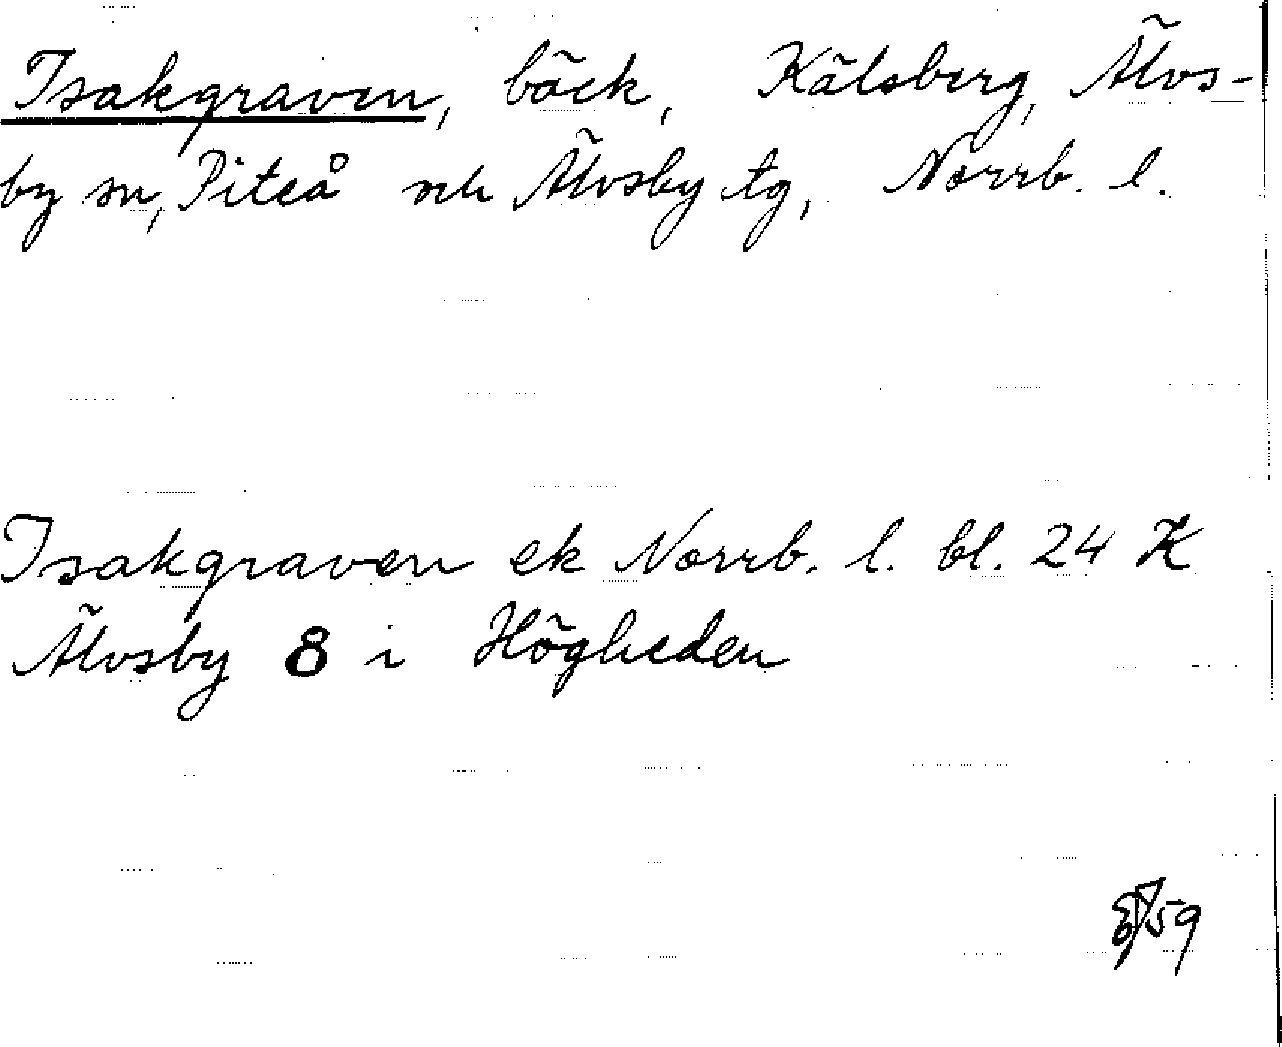 Isakgraven, bäck, Kälsberg, Älvs-
by sn, Piteå och Älvsby tg, Norrb. l.
Isakgraven ek Norrb. l. bl. 24 K
Älvsby 8 i Högheden